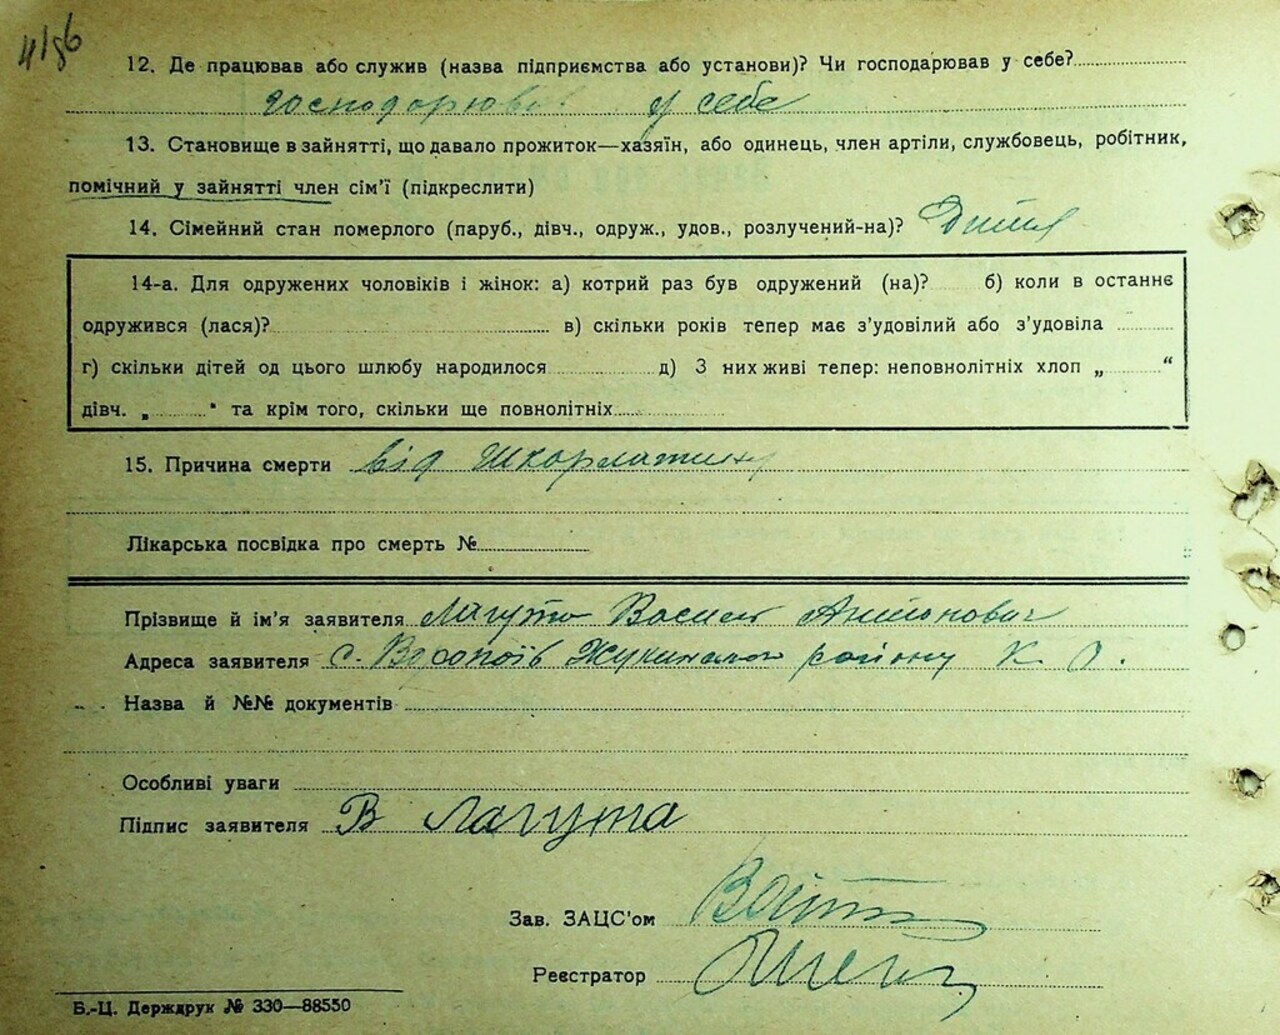 12. Де працював або служив (назва підприємства або установи)? Чи господарював у себе?
господорював у себе
13. Становище в зайнятті, що давало прожиток—хазяїн, або одинець, член артіли, службовець, робітник,
помічний у зайнятті член сім'ї (підкреслити)
14. Сімейний стан померлого (паруб., дівч., одруж., удов., розлучений-на)?
14-а. Для одружених чоловіків і жінок: а) котрий раз був одружений (на)? б) коли в останнє
одружився (лася)? в) скільки років тепер має з'удовілий або з'удовіла
г) скільки дітей од цього шлюбу народилося д) З них живі тепер: неповнолітніх хлоп „ “
дівч. „ “ та крім того, скільки ще повнолітніх
15. Причина смерти від шкорлатини
Лікарська посвідка про смерть №
Прізвище й ім'я заявителя Лагута Василь Антонович
Адреса заявителя с. Воропоїв Жукинського району К. О.
Назва й №№ документів
Особливі уваги
Підпис заявителя В Лагута
Зав. ЗАЦС'ом
Реєстратор
Б.-Ц. Держдрук № 330—88550